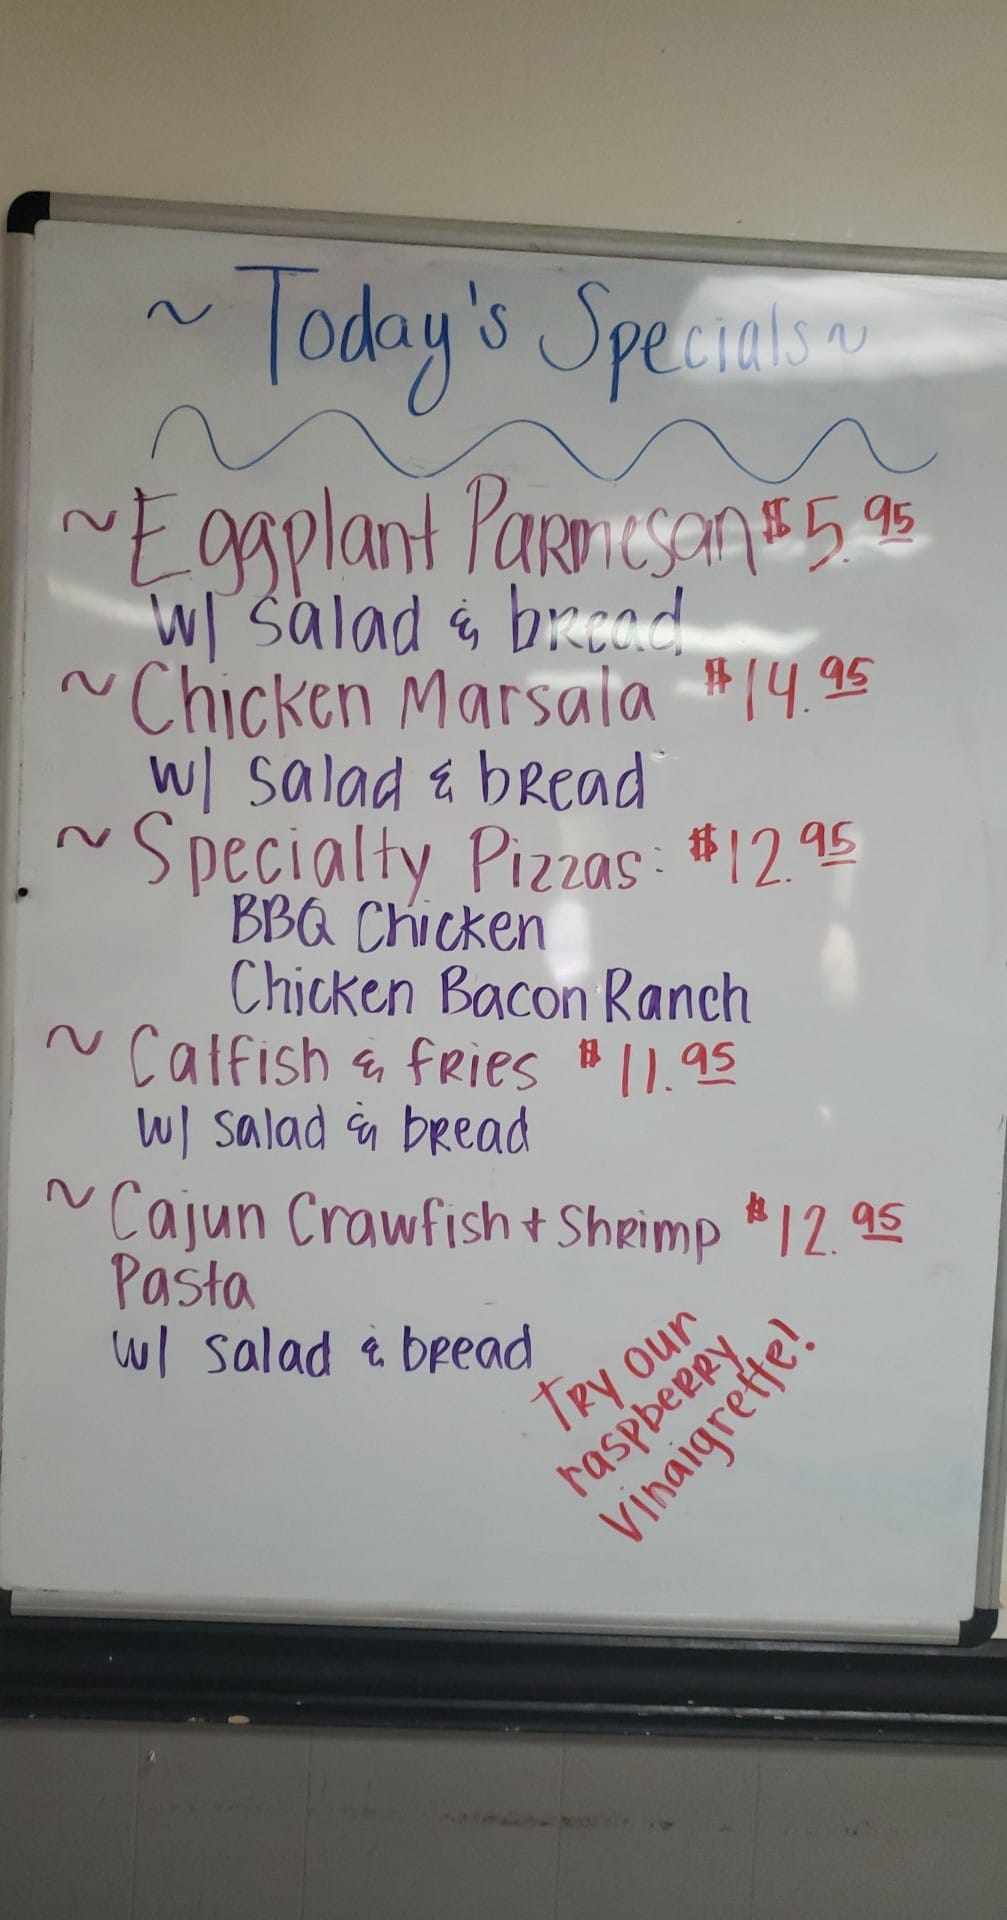 ~ Today's Specials ~
~ Eggplant Parmesan $5.95
w/ salad & bread
~ Chicken Marsala $14.95
w/ salad & bread
~ Specialty Pizzas: $12.95
BBQ Chicken
Chicken Bacon Ranch
~ Catfish & fries $11.95
w/ salad & bread
~ Cajun Crawfish + Shrimp $12.95
Pasta
w/ salad & bread
Try our
raspberry
Vinaigrette!